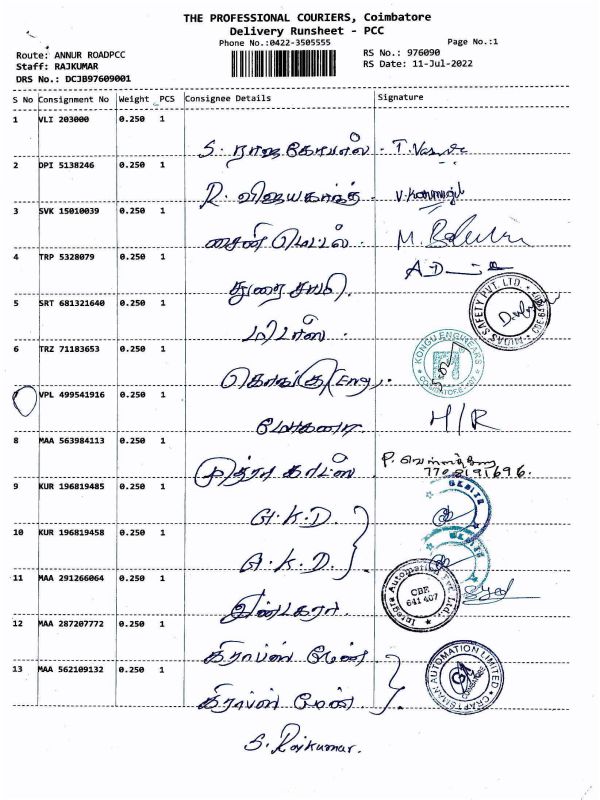 THE PROFESSIONAL COURIERS, Coimbatore
Delivery Runsheet - PCC
Phone No.:0422-3505555
Page No.:1
Route: ANNUR ROADPCC
RS No.: 976090
Staff: RAJKUMAR
RS Date: 11-Jul-2022
DRS No.: DCJB97609001
S No Consignment No Weight PCS Consignee Details Signature
1 VLI 203000 0.250 1
S. ராஜகோபால்
2 DPI 5138246 0.250 1
R. விஜயகாந்த்
3 SVK 15010039 0.250 1
சைன் மெட்டல்
4 TRP 5328079 0.250 1
துரை சாமி
5 SRT 681321640 0.250 1
மிடாஸ்
MIDAS SAFETY PVT. LTD
6 TRZ 71183653 0.250 1
கொங்கு Eng
KONGU ENGINEARS
VPL 499541916 0.250 1
மோகனா H/R
8 MAA 563984113 0.250 1
சித்ரா காட்ஸ் P.
7708191696.
9 KUR 196819485 0.250 1
G.K.D.
10 KUR 196819458 0.250 1
G.K.D.
11 MAA 291266064 0.250 1
இன்டகரா
Integra Automation Pvt. Ltd.
CBE
641 407
12 MAA 287207772 0.250 1
கிராப்ஸ் மேன்
13 MAA 562109132 0.250 1
கிராப்ஸ் மேன்
CRAFTSMAN AUTOMATION LIMITED
S. Rajkumar.